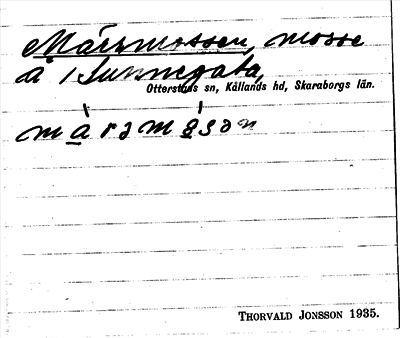 Märsmossen, mosse
å 1 Sunnegata,
Otterstads sn, Kållands hd, Skaraborgs län.
THORVALD JONSSON 1935.